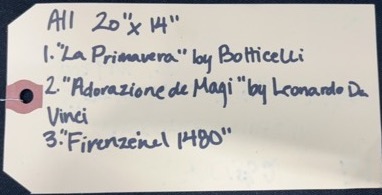 All 20"x 14"
1. "La Primavera" by Botticelli
2. "Adorazione de Magi" by Leonardo Da
Vinci
3. "Firenzeinel 1480"